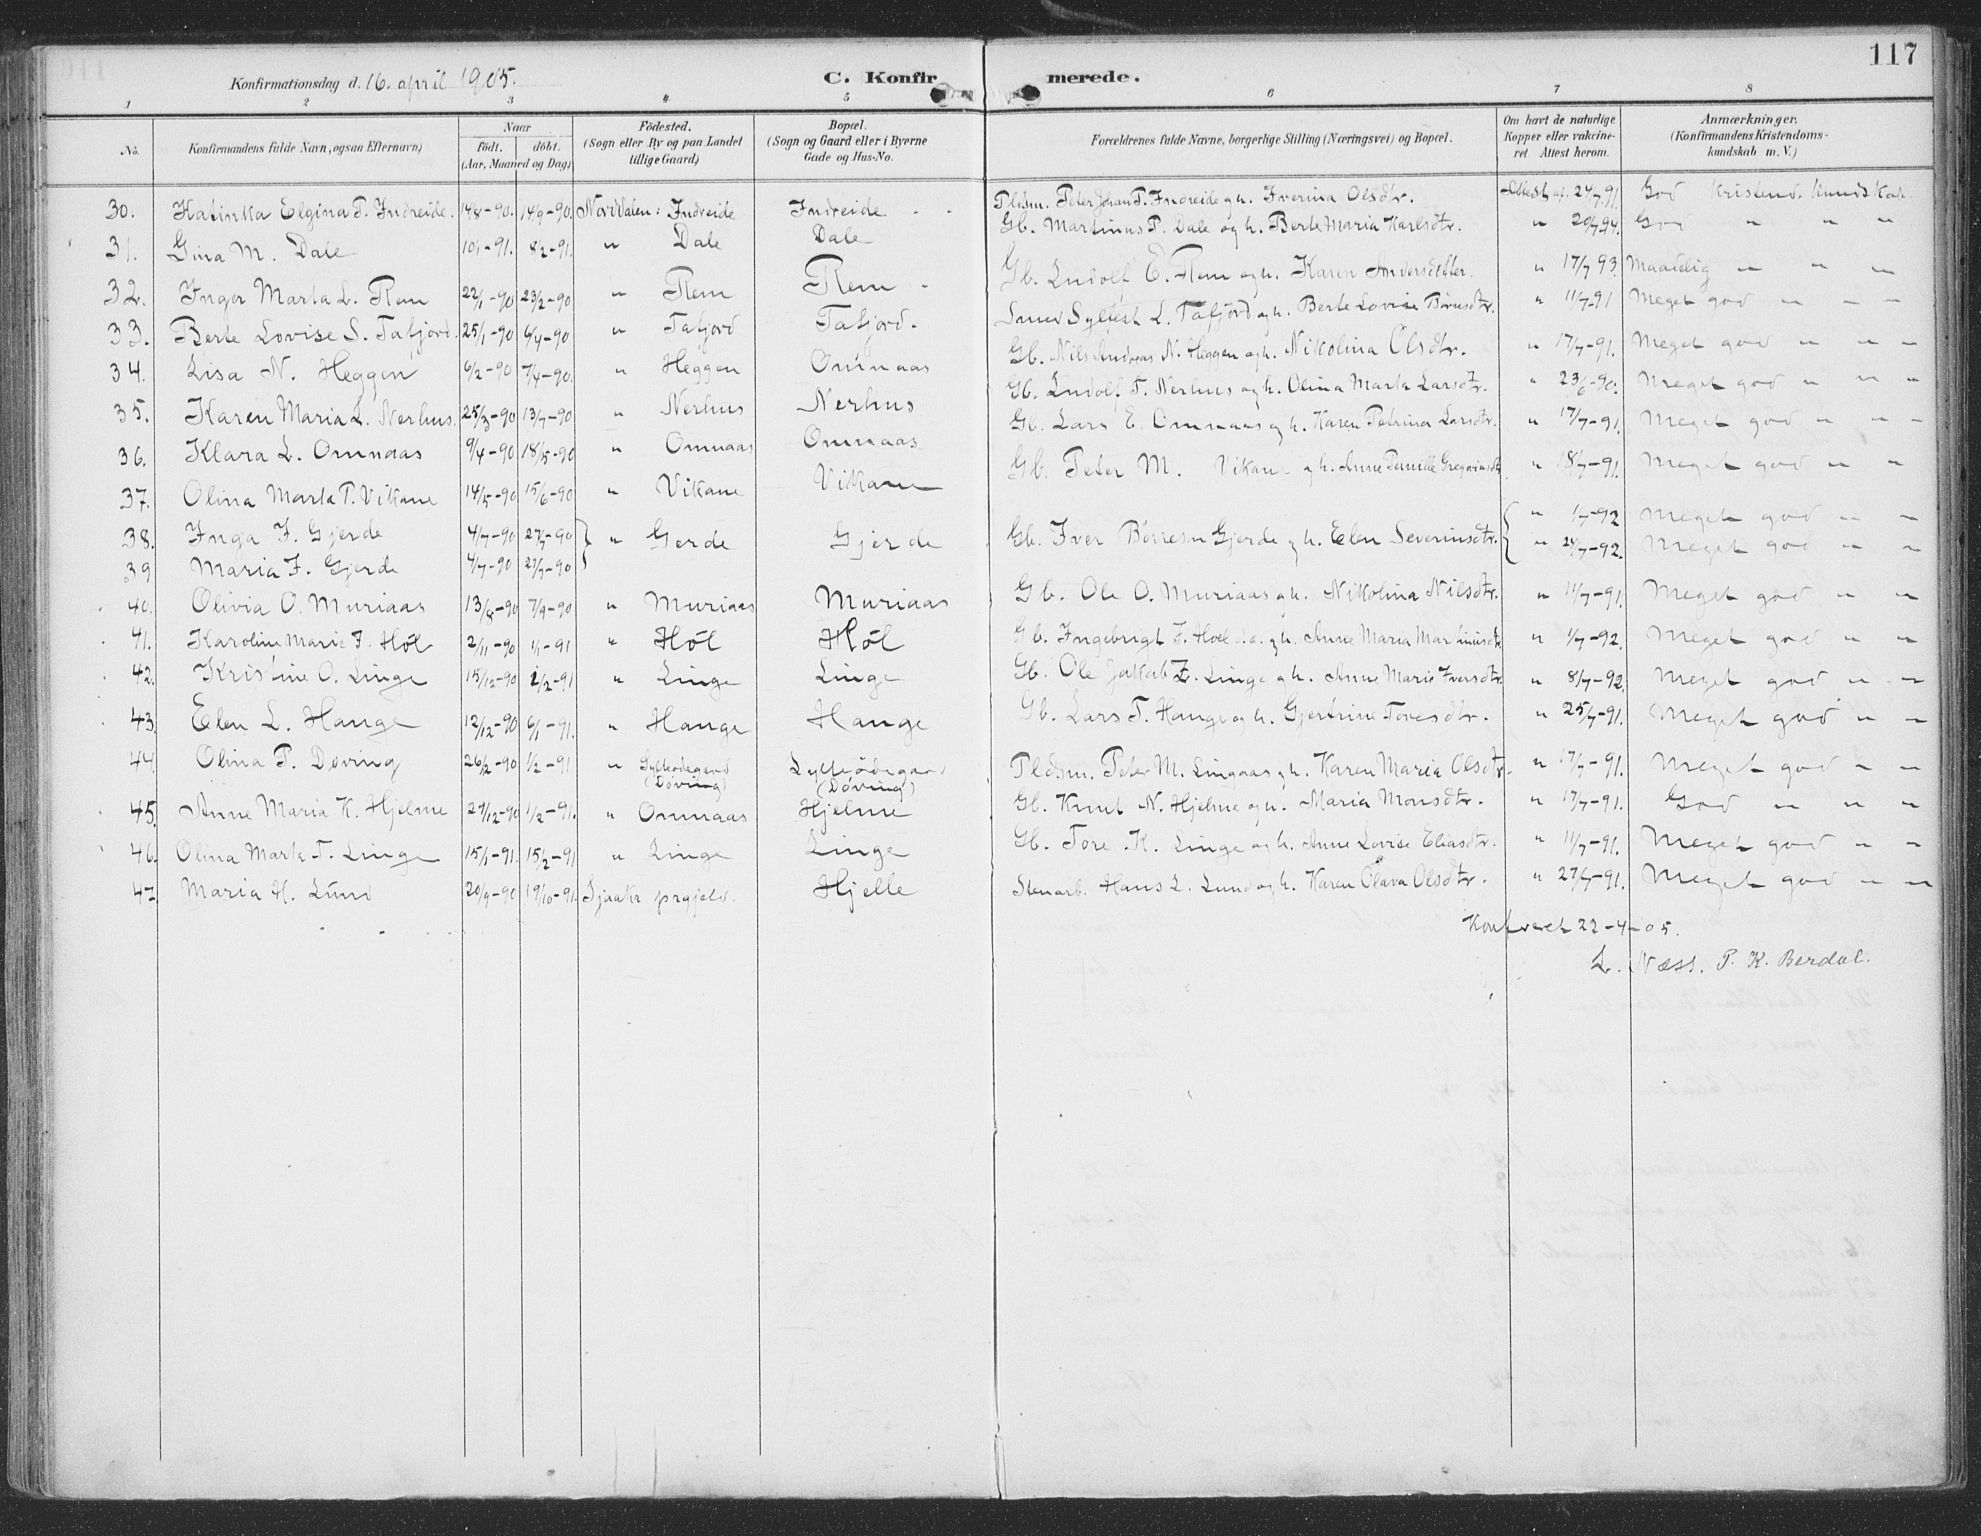 117
Konfirmationsdag d. 16. april 1905.
C. Konfirmerede.
1 2 3 4 5 6 7 8
No. Konfirmandens fulde Navn, ogsaa Efternavn) Naar födt. döbt. (Aar, Maaned og Dag) Födested. (Sogn eller By og paa Landet tillige Gaard) Bopæl. (Sogn og Gaard eller i Byerne Gade og Hus-No. Forældrenes fulde Navne, borgerlige Stilling (Næringsvei) og Bopæl. Om havt de naturlige Kopper eller vakcineret. Attest herom. Anmærkninger. (Konfirmandens Kristendomskundskab m. V.)
30. Katinka Elgina P. Indreide. 14/8-90. 14/9-90. Norddalen: Indreide Indreide Pldsm. Peter Johan P. Indreide og h. Iverina Olsdtr. Attest af. 24/7 91. God Kristend. Kundskab
31. Gina M. Dale 10/1-91. 8/2-91. " Dale Dale Gb. Martinus P. Dale og h. Berte Maria Karlsdtr. " 20/7 94. God " " "
32. Inger Marta L. Rem 22/1-90 23/2-90 " Rem Rem Gb. Ludolf E. Rem og h. Karen Andersdatter. " 17/7 93. Maadelig " " "
33. Berte Lovise S. Tafjord. 25/1-90 6/4-90 " Tafjord Tafjord. Smed Syltest L. Tafjord og h. Berte Lovise Børnsdtr. " 11/7-91 Meget god " " "
34. Lisa N. Heggen 6/2-90 7/4-90. " Heggen Omnaas Gb. Nils Andreas N. Heggen og h. Nikolina Olsdtr. " 17/7-91. Meget god " " "
35. Karen Maria L. Nerhus. 25/3-90 13/7-90 " Nerhus Nerhus Gb. Ludolf T. Nerhus og h. Olina Marta Larsdtr. " 23/6-90. Meget god " " "
36. Klara L. Omnaas 9/4-90 18/5-90 " Omnaas Omnaas Gb. Lars E. Omnaas og h. Karen Petrina Larsdtr. " 17/7-91. Meget god " " "
37. Olina Marta P. Vikane 14/5-90 15/6-90 " Vikane Vikane Gb. Peter M. Vikane og h. Anne Pernille Gregoriusdtr " 18/7-91. Meget god " "
38. Inga I. Gjerde 4/7-90 27/7-90 " Gerde Gjerde Gb. Iver Børresen Gjerde og h. Elen Severinsdtr. " 1/7-92 Meget god " "
39 Maria I. Gjerde 4/7-90 27/7-90 " 24/7-92. Meget god " "
40. Olivia O. Muriaas 13/8-90 7/9-90 " Muriaas Muriaas Gb. Ole O. Muriaas og h. Nikolina Nilsdtr. " 11/7-91. Meget god " "
41. Karoline Marie I. Höl 2/11-90 1/1-91 " Höl Höl Gb. Ingebrigt I. Hoel og h. Anne Maria Martinusdtr " 1/7-92. Meget god " "
42. Kristine O. Linge 15/12-90 1/2-91 " Linge Linge Gb. Ole Jakob Z. Linge og h. Anne Marie Iversdtr. " 8/7-92. Meget god " "
43. Elen L. Hauge 12/12-90 6/1-91. " Hauge Hauge Gb. Lars T. Hauge og h. Gjertrine Toresdtr. " 25/7-91. Meget god " "
44. Olina P. Døving 26/2-90 1/2-91 " Sylteødegard (Døving) Sylteødegaard (Døving) Pldsm. Peter M. Lingaas og h. Karen Maria Olsdtr. " 17/7-91. Meget god " "
45. Anne Maria K. Hjelme 27/12-90 1/2-91. " Omnaas Hjelme Gb. Knut N. Hjelme og h. Maria Monsdtr. " 17/7-91. God " " "
46. Olina Marta T. Linge 15/1-91. 15/2-91 " Linge Linge Gb. Tore K. Linge og h. Anne Lovise Eliasdtr. " 11/7-91. Meget god " "
47 Maria H. Lund 20/9-90 19/10-91. Sjaak prgjeld. Hjelle Stenarb. Hans L. Lund og h. Karen Olava Olsdtr. " 27/7-91. Meget god " "
Konfereret 22-4-05.
L. Næss. P. K. Berdal.